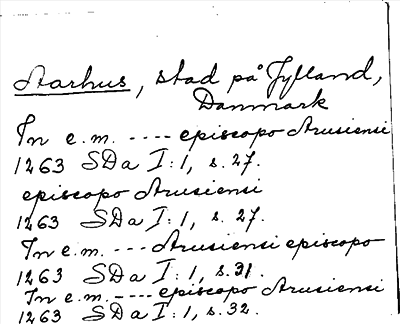 Aarhus, stad på Jylland,
Danmark
In e.m. ---- episcopo Arusiensi
1263 SDa I:1, s. 27.
episcopo Arusiensi
1263 SDa I:1, s. 27.
In e.m. --- Arusiensi episcopo
1263 SDa I:1, s.31.
In e.m. ---- episcopo Arusiensi
1263 SDa I:1, s.32.